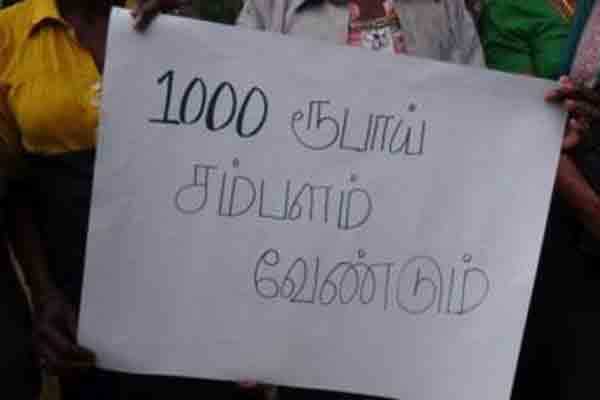 1000 ரூபாய்
சம்பளம்
வேண்டும்